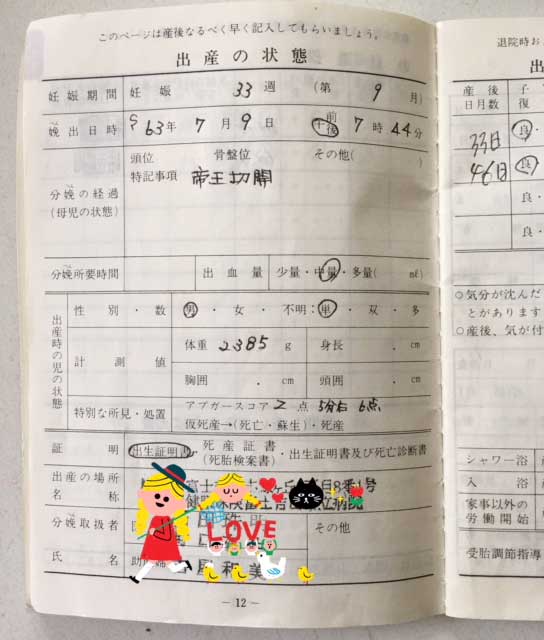 このページは産後なるべく早く記入してもらいましょう。
出産の状態
妊娠期間 妊娠 33 週 (第 9 月)
娩出日時 S63年 7月9日 午前後 7時44分
頭位 骨盤位 その他( )
分娩の経過 特記事項 帝王切開
(母児の状態)
分娩所要時間 出血量 少量・中量・多量( ml)
出産時の児の状態
性別・数 男・女・不明:単・双・多
計測値 体重 2385 g 身長 . cm
胸囲 . cm 頭囲 . cm
特別な所見・処置 アプガースコア 2点 5分后 6点
仮死産→(死亡・蘇生)・死産
証明 出生証明書・死産証書(死胎検案書)・出生証明書及び死亡診断書
出産の場所
名称
分娩取扱者 その他
氏名
LOVE
和美
-12-
退院時お
産後日月数
33日 良
46日 良
良・
良・
○気分が沈んだ
とがあります
○産後、気が付
シャワー浴
入浴
家事以外の
労働開始
受胎調節指導